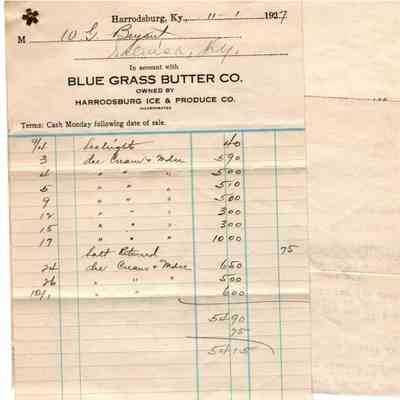 Harrodsburg, Ky., 11-1 1927
M W G Bryant
Ky.
In account with
BLUE GRASS BUTTER CO.
OWNED BY
HARRODSBURG ICE & PRODUCE CO.
INCORPORATED
Terms: Cash Monday following date of sale.
9/1 40
3 Ice Cream & Mdse 590
4 " " " 500
5 " " " 510
9 " " " 500
12 " " " 300
15 " " " 300
17 " " " 1000
Salt Returned 75
24 Ice Cream & Mdse 650
26 " " " 500
10/1 " " " 600
5490
75
5415